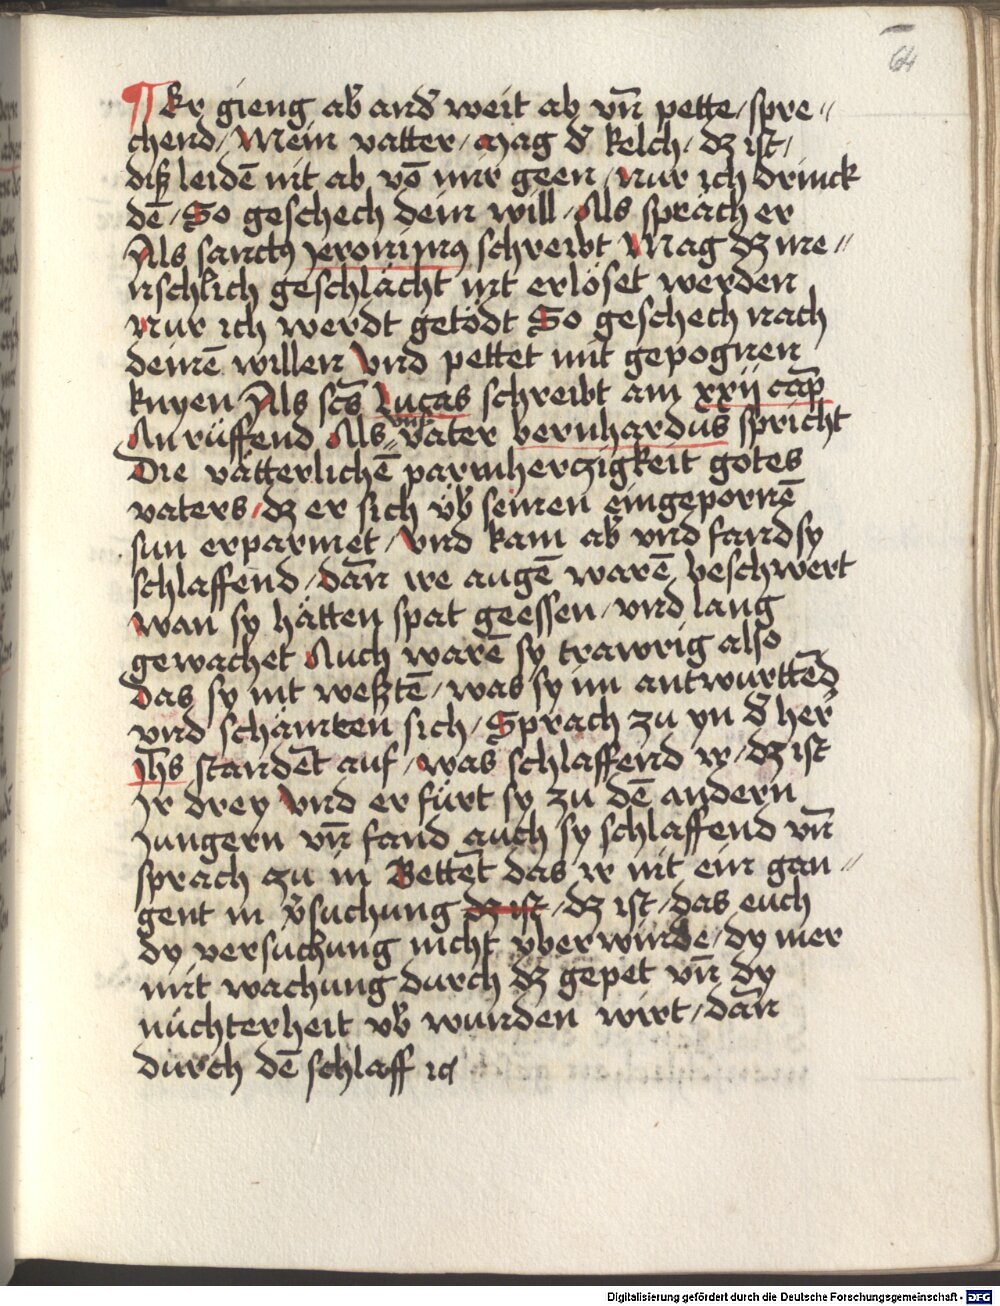 64
¶ Er gieng ab̕ and̕ weit ab vn̄ pette / spre〃
chend / Mein vatter / mag d̕ kelch / dz ist /
diß leidē nit ab vō mir geen / nur ich drinck
dē / So geschech dein will / Als sprach er
Als sanctꝰ jeronimꝰ schreibt Mag dz me〃
nschlich geschlächt nit erlöset werden
nur ich werdt getödt So geschech nach
deinē willen Vnd pettet mit gepognen
knyen Als scs̄ Lucas schreibt am xxij cap̄
Anrüffend Als vnser vater bernhardus spricht
Die vätterlichē parmherczigkeit gotes
vaters / dz er sich v̈b̕ seinen eingepornē
sun erparmet / Vnd kam ab̕ vnd fand sy
schlaffend / dan̄ ire augē warē beschwert
wan sy hätten spat geessen / vnd lang
gewachet Auch warē sy trawrig also
das sy nit weßtē / was sy im antwurttēd
vnd schämten sich / Sprach zu yn d̕ her̕
Jh̄s standēt auf / was schlaffend ir / dz ist
Jr drey Vnd er fürt sy zu dē andern
Jungern vn̄ fand auch sy schlaffend vn̄
sprach zu in Bettēt das ir nit ein gan〃
gent in v̕suchung dz ist / dz ist / das euch
dy versuchung nicht v̈berwinde / dy mer
mit wachung durch dz gepet vn̄ dy
nüchterheit v̈b̕ wunden wirt / dan̄
durch dē schlaff ꝛc
Digitalisierung gefördert durch die Deutsche Forschungsgemeinschaft - DFG